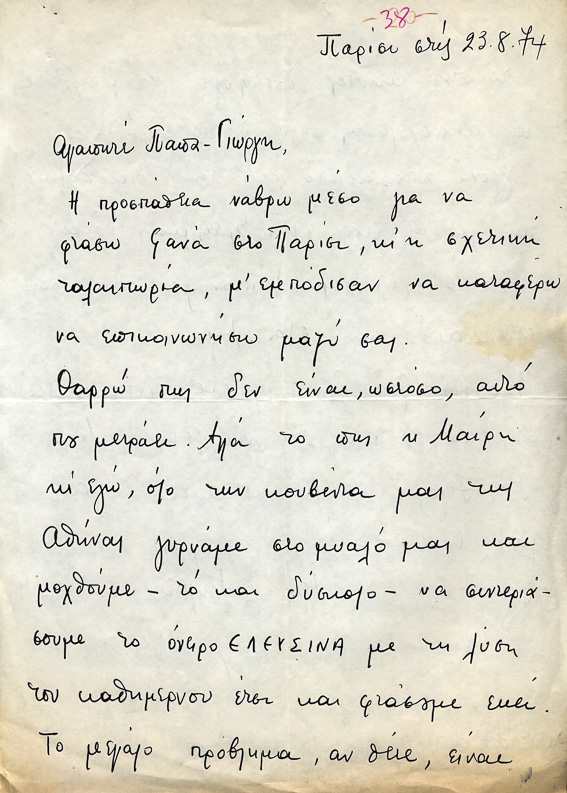 -380-
Παρίσι στις 23.8.74
Αγαπητέ Παπα-Γιώργη,
Η προσπάθεια νάβρω μέσο για να
φτάσω ξανά στο Παρίσι, κι η σχετική
ταλαιπωρία, μ' εμπόδισαν να καταφέρω
να επικοινωνήσω μαζύ σας.
Θαρρώ πως δεν είναι, ωστόσο, αυτό
που μετράει. Αλλά το πως η Μαίρη
κι εγώ, όλο την κουβέντα μας της
Αθήνας γυρνάμε στο μυαλό μας και
μοχθούμε - τό και δύσκολο - να συντεριά-
σουμε το όνειρο ΕΛΕΥΣΙΝΑ με τη λύση
του καθημερνού έτσι και φτάσουμε εκεί.
Το μεγάλο πρόβλημα, αν θέτε, είναι